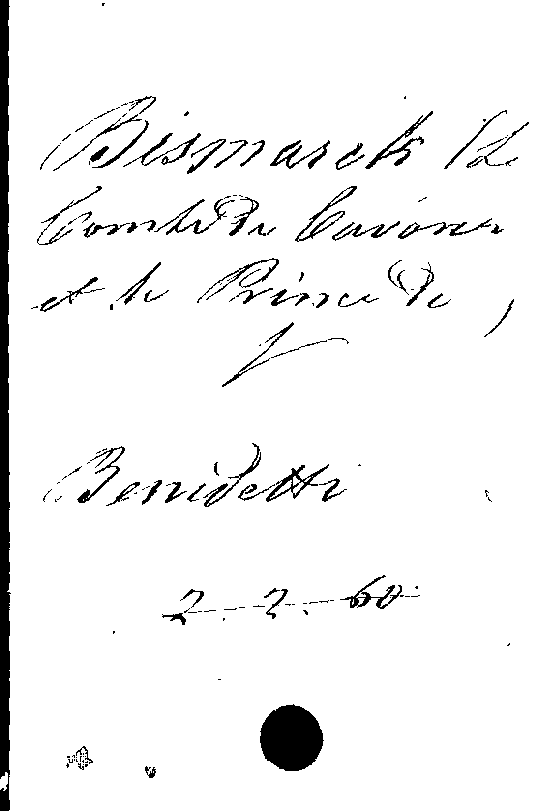 Bismarck (Le
Comte de Cavour
et le Prince de )
Benedetti
2. 2. 60